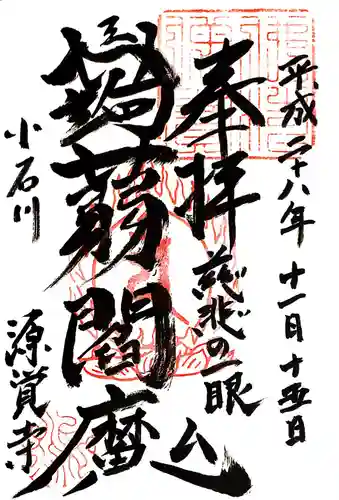 平成二十八年 十一月 十五日
奉拝
慈悲の一眼
蒟蒻閻魔
小石川
源覚寺